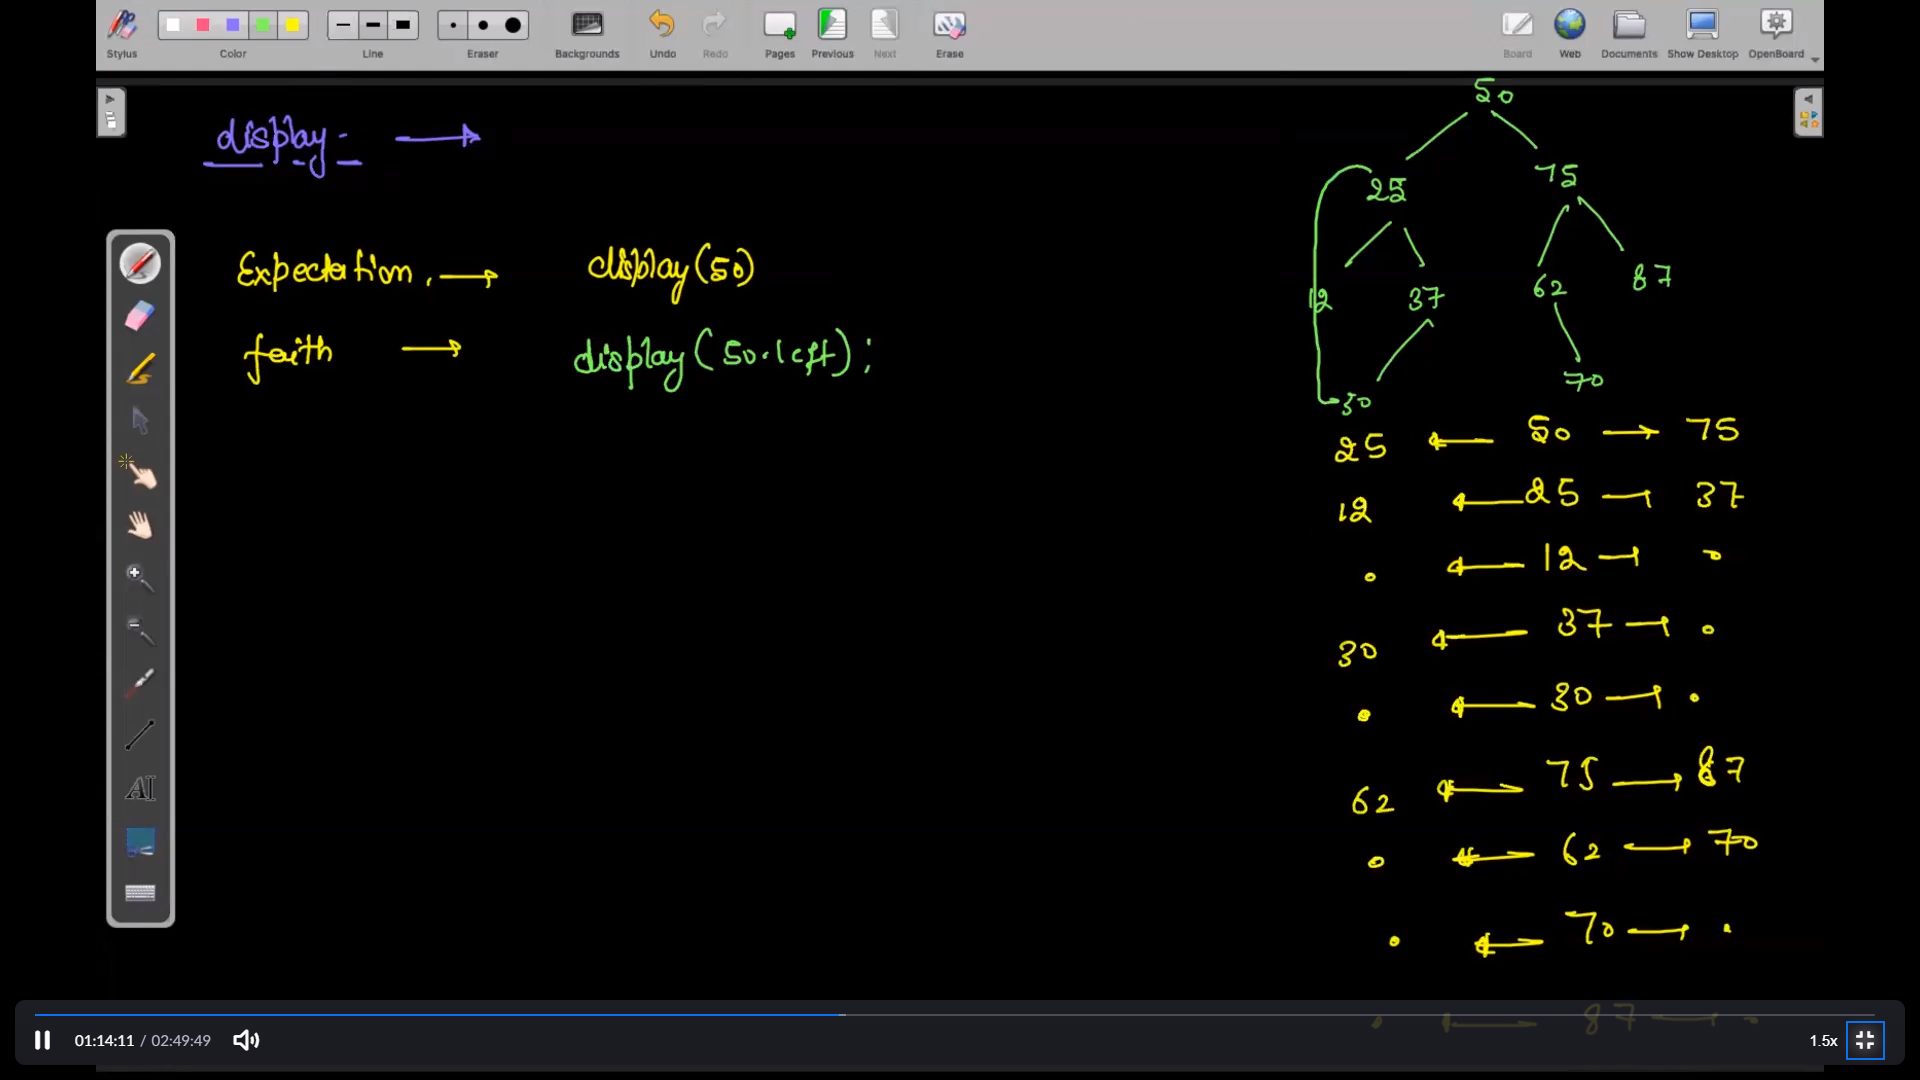 Stylus Color Line Eraser Backgrounds Undo Redo Pages Previous Next Erase Board Web Documents Show Desktop OpenBoard
display -
Expectation. display(50)
faith display(50.left);
50
25 75
12 37 62 87
30 70
25 50 75
12 25 37
. 12 .
30 37 .
. 30 .
62 75 87
. 62 70
. 70 .
. 87 .
AI
01:14:11 / 02:49:49 1.5x